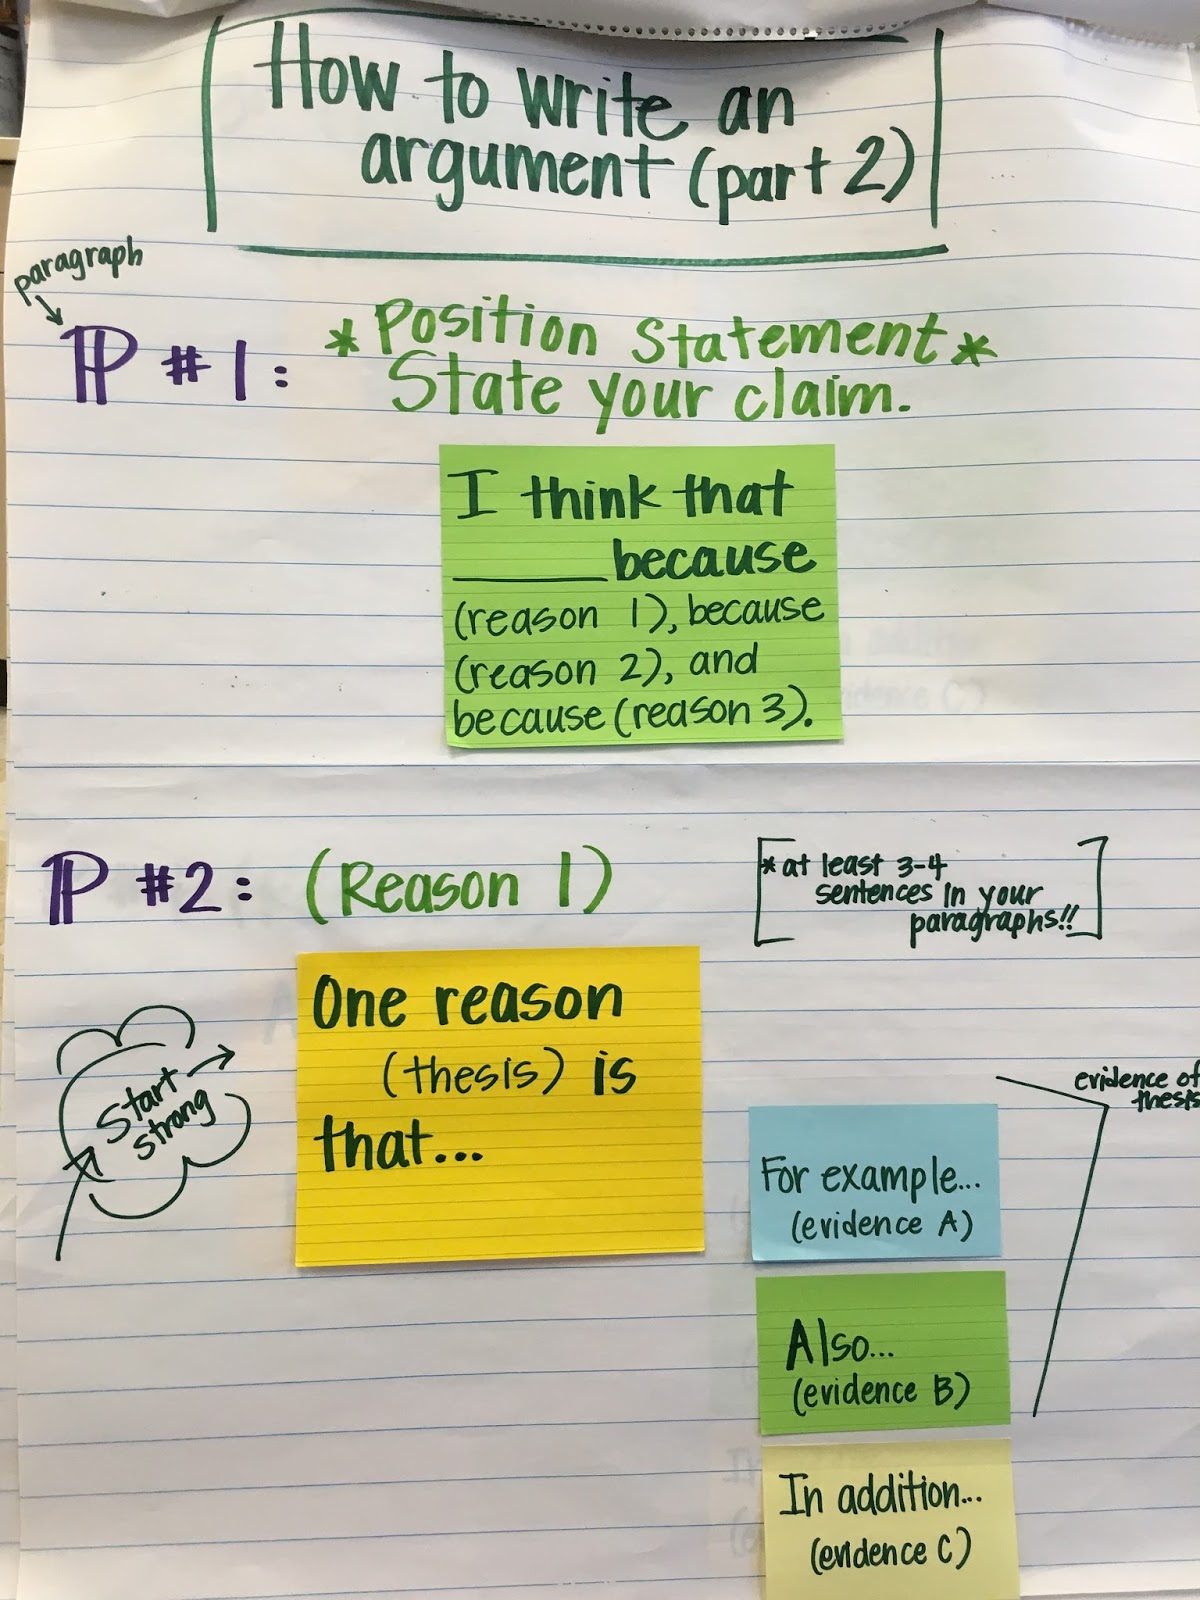 How to write an
argument (part 2)
paragraph
P #1:
*Position Statement*
State your claim.
I think that
______ because
(reason 1), because
(reason 2), and
because (reason 3).
P #2: (Reason 1)
*at least 3-4
sentences in your
paragraphs!!
Start
strong
One reason
(thesis) is
that...
evidence of
thesis
For example...
(evidence A)
Also...
(evidence B)
In addition...
(evidence C)